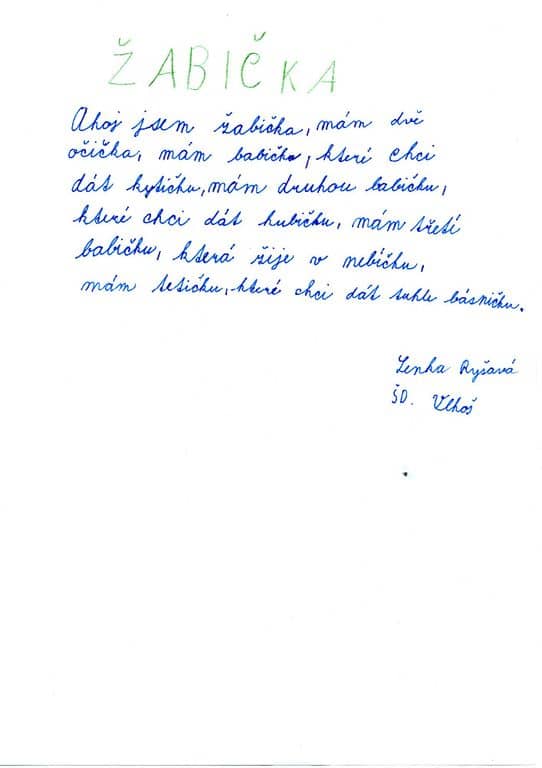 ŽABIČKA
Ahoj jsem žabička, mám dvě
očička, mám babičku, které chci
dát kytičku, mám druhou babičku,
které chci dát hubičku, mám třetí
babičku, která žije v nebíčku,
mám tetičku, které chci dát tuhle básničku.
Lenka Ryšavá
ŠD. Úlhoš